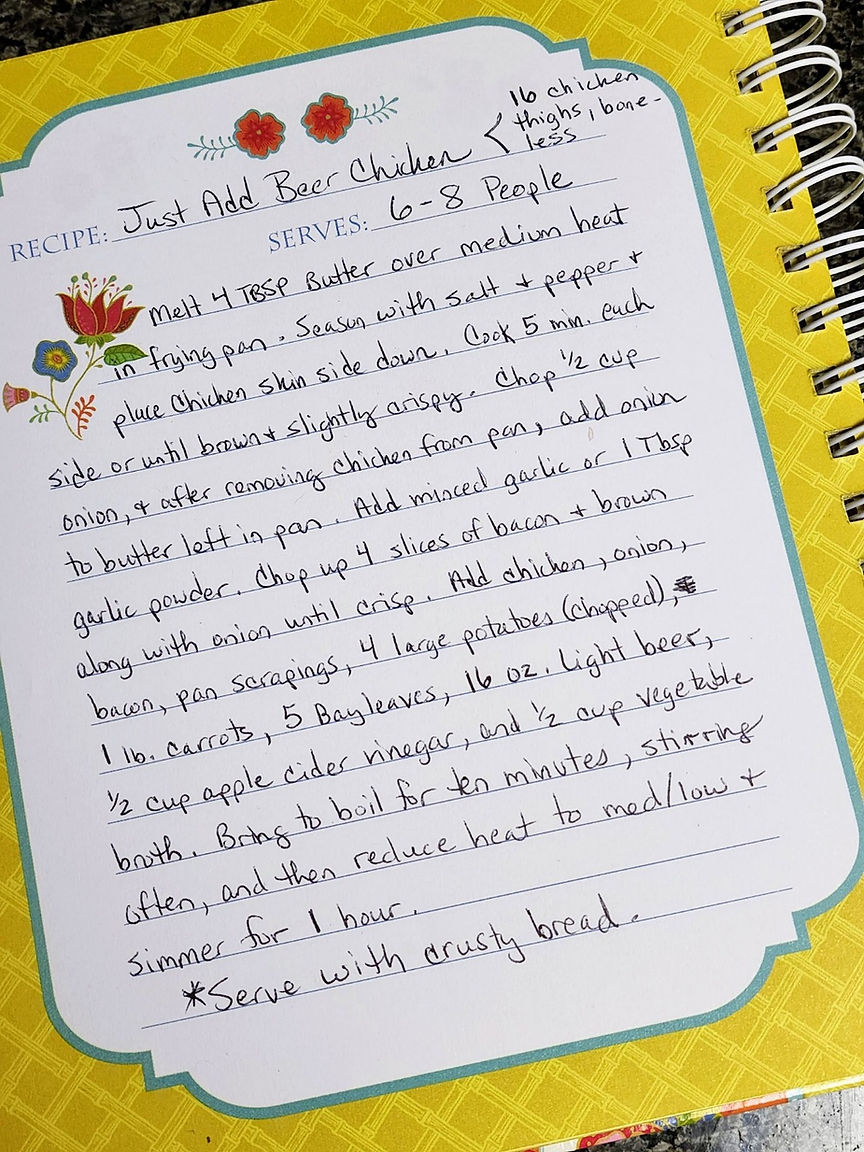 16 chicken
thighs, bone-
less
RECIPE: Just Add Beer Chicken <
SERVES: 6-8 People
Melt 4 TBSP Butter over medium heat
in frying pan. Season with salt + pepper +
place Chicken skin side down. Cook 5 min. each
side or until brown + slightly crispy. Chop 1/2 cup
onion, + after removing chicken from pan, add onion
to butter left in pan. Add minced garlic or 1 Tbsp
garlic powder. Chop up 4 slices of bacon + brown
along with onion until crisp. Add chicken, onion,
bacon, pan scrapings, 4 large potatoes (chopped),
1 lb. carrots, 5 Bayleaves, 16 oz. light beer,
1/2 cup apple cider vinegar, and 1/2 cup vegetable
broth. Bring to boil for ten minutes, stirring
often, and then reduce heat to med/low +
simmer for 1 hour.
*Serve with crusty bread.